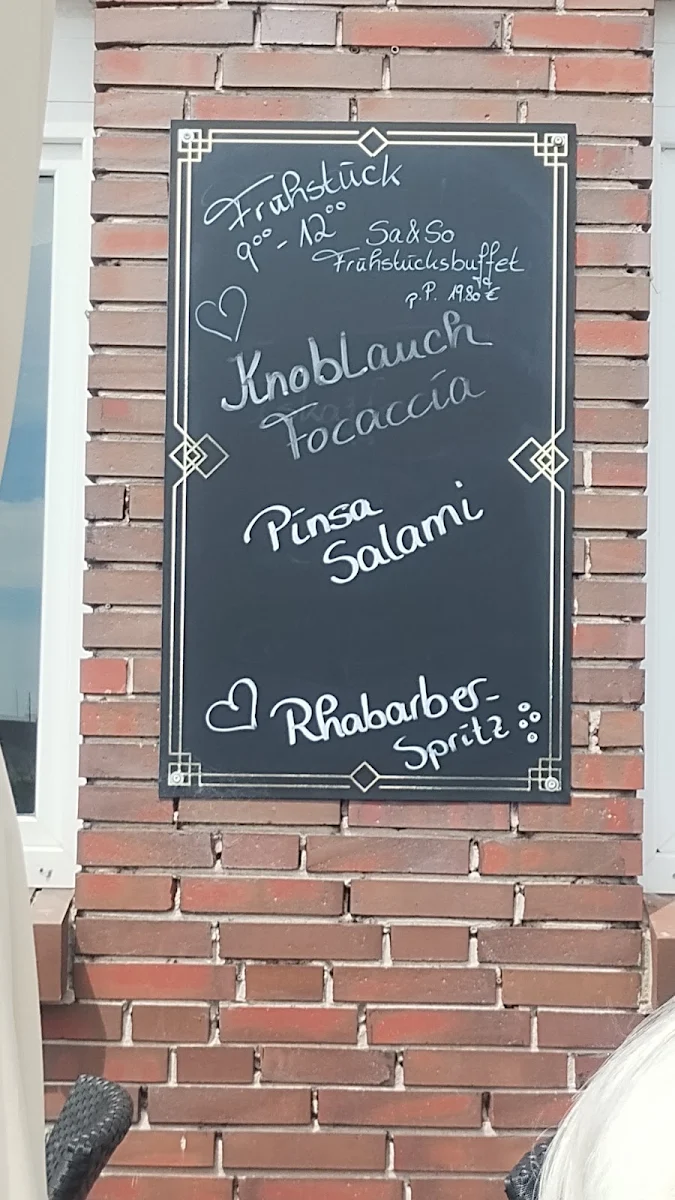 Frühstück
9⁰⁰ - 12⁰⁰
Sa & So
Frühstücksbuffet
p.P. 19,80 €
Knoblauch
Focaccia
Pinsa
Salami
Rhabarber-
Spritz